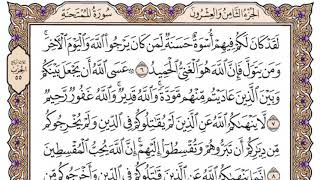 الجزء الثامن والعشرون
سورة الممتحنة
لَقَدْ كَانَ لَكُمْ فِيهِمْ أُسْوَةٌ حَسَنَةٌ لِّمَن كَانَ يَرْجُوا۟ ٱللَّهَ وَٱلْيَوْمَ ٱلْءَاخِرَ ۚ
وَمَن يَتَوَلَّ فَإِنَّ ٱللَّهَ هُوَ ٱلْغَنِىُّ ٱلْحَمِيدُ ٦ ۞ عَسَى ٱللَّهُ أَن يَجْعَلَ بَيْنَكُمْ
وَبَيْنَ ٱلَّذِينَ عَادَيْتُم مِّنْهُم مَّوَدَّةً ۚ وَٱللَّهُ قَدِيرٌ ۚ وَٱللَّهُ غَفُورٌ رَّحِيمٌ
٧ لَّا يَنْهَىٰكُمُ ٱللَّهُ عَنِ ٱلَّذِينَ لَمْ يُقَٰتِلُوكُمْ فِى ٱلدِّينِ وَلَمْ يُخْرِجُوكُم
مِّن دِيَٰرِكُمْ أَن تَبَرُّوهُمْ وَتُقْسِطُوٓا۟ إِلَيْهِمْ ۚ إِنَّ ٱللَّهَ يُحِبُّ ٱلْمُقْسِطِينَ
٨ إِنَّمَا يَنْهَىٰكُمُ ٱللَّهُ عَنِ ٱلَّذِينَ قَٰتَلُوكُمْ فِى ٱلدِّينِ وَأَخْرَجُوكُم
الحزب
٥٥